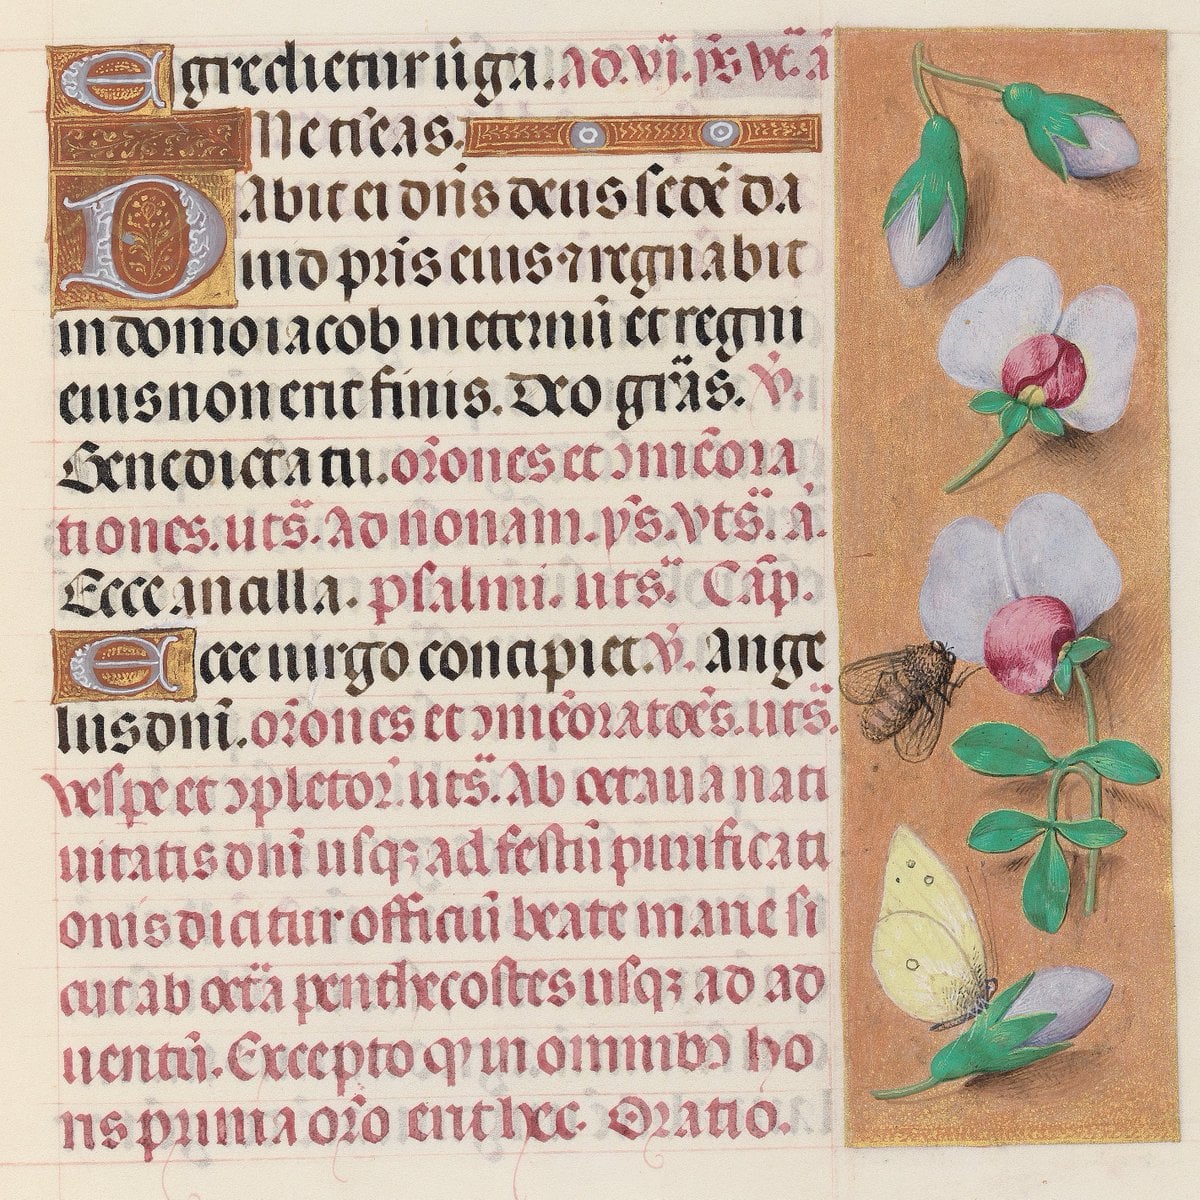 Egredietur uirga. Ad .vi. p̄s vt. ā
Ne timeas.
Dabit ei dn̄s deus sedē da
uid pr̄is eius ⁊ regnabit
in domo iacob in eternū et regni
eius non erit finis. Deo gr̄as. V̄.
Benedicta tu. or̄ones et ↄmēora
tiones. ut s̄. Ad nonam. p̄s. vt s̄. ā.
Ecce ancilla. psalmi. ut s̄. Cap̄.
Ecce uirgo concipiet. V̄. Ange
lus dn̄i. or̄ones et ↄmēoratōes. ut s̄.
vesp̄e et ↄpletor̄. ut s̄. Ab octaua nati
uitatis dn̄i usqꝫ ad festū purificati
onis dicitur officiū beate marie si
cut ab octā penthecostes usqꝫ ad ad
uentū. Excepto ꝙ in omnibꝫ ho
ris prima or̄o erit hec. Oratio.